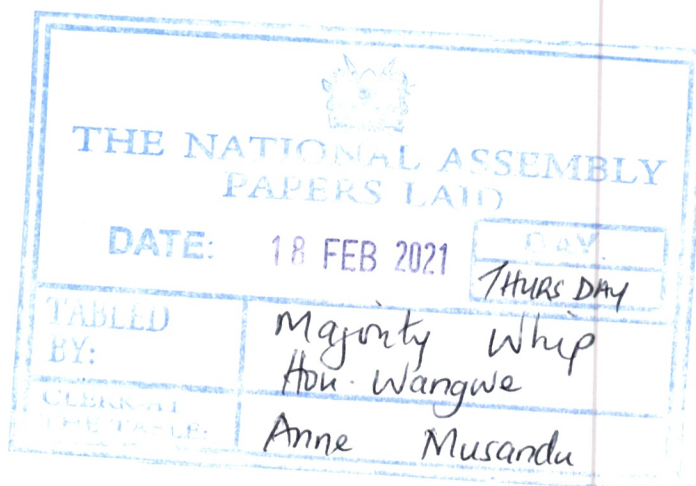 THE NATIONAL ASSEMBLY
PAPERS LAID
DATE: 18 FEB 2021
DAY.
THURSDAY
TABLED BY:
Majority Whip
Hon. Wangwe
CLERK AT THE TABLE:
Anne Musandu